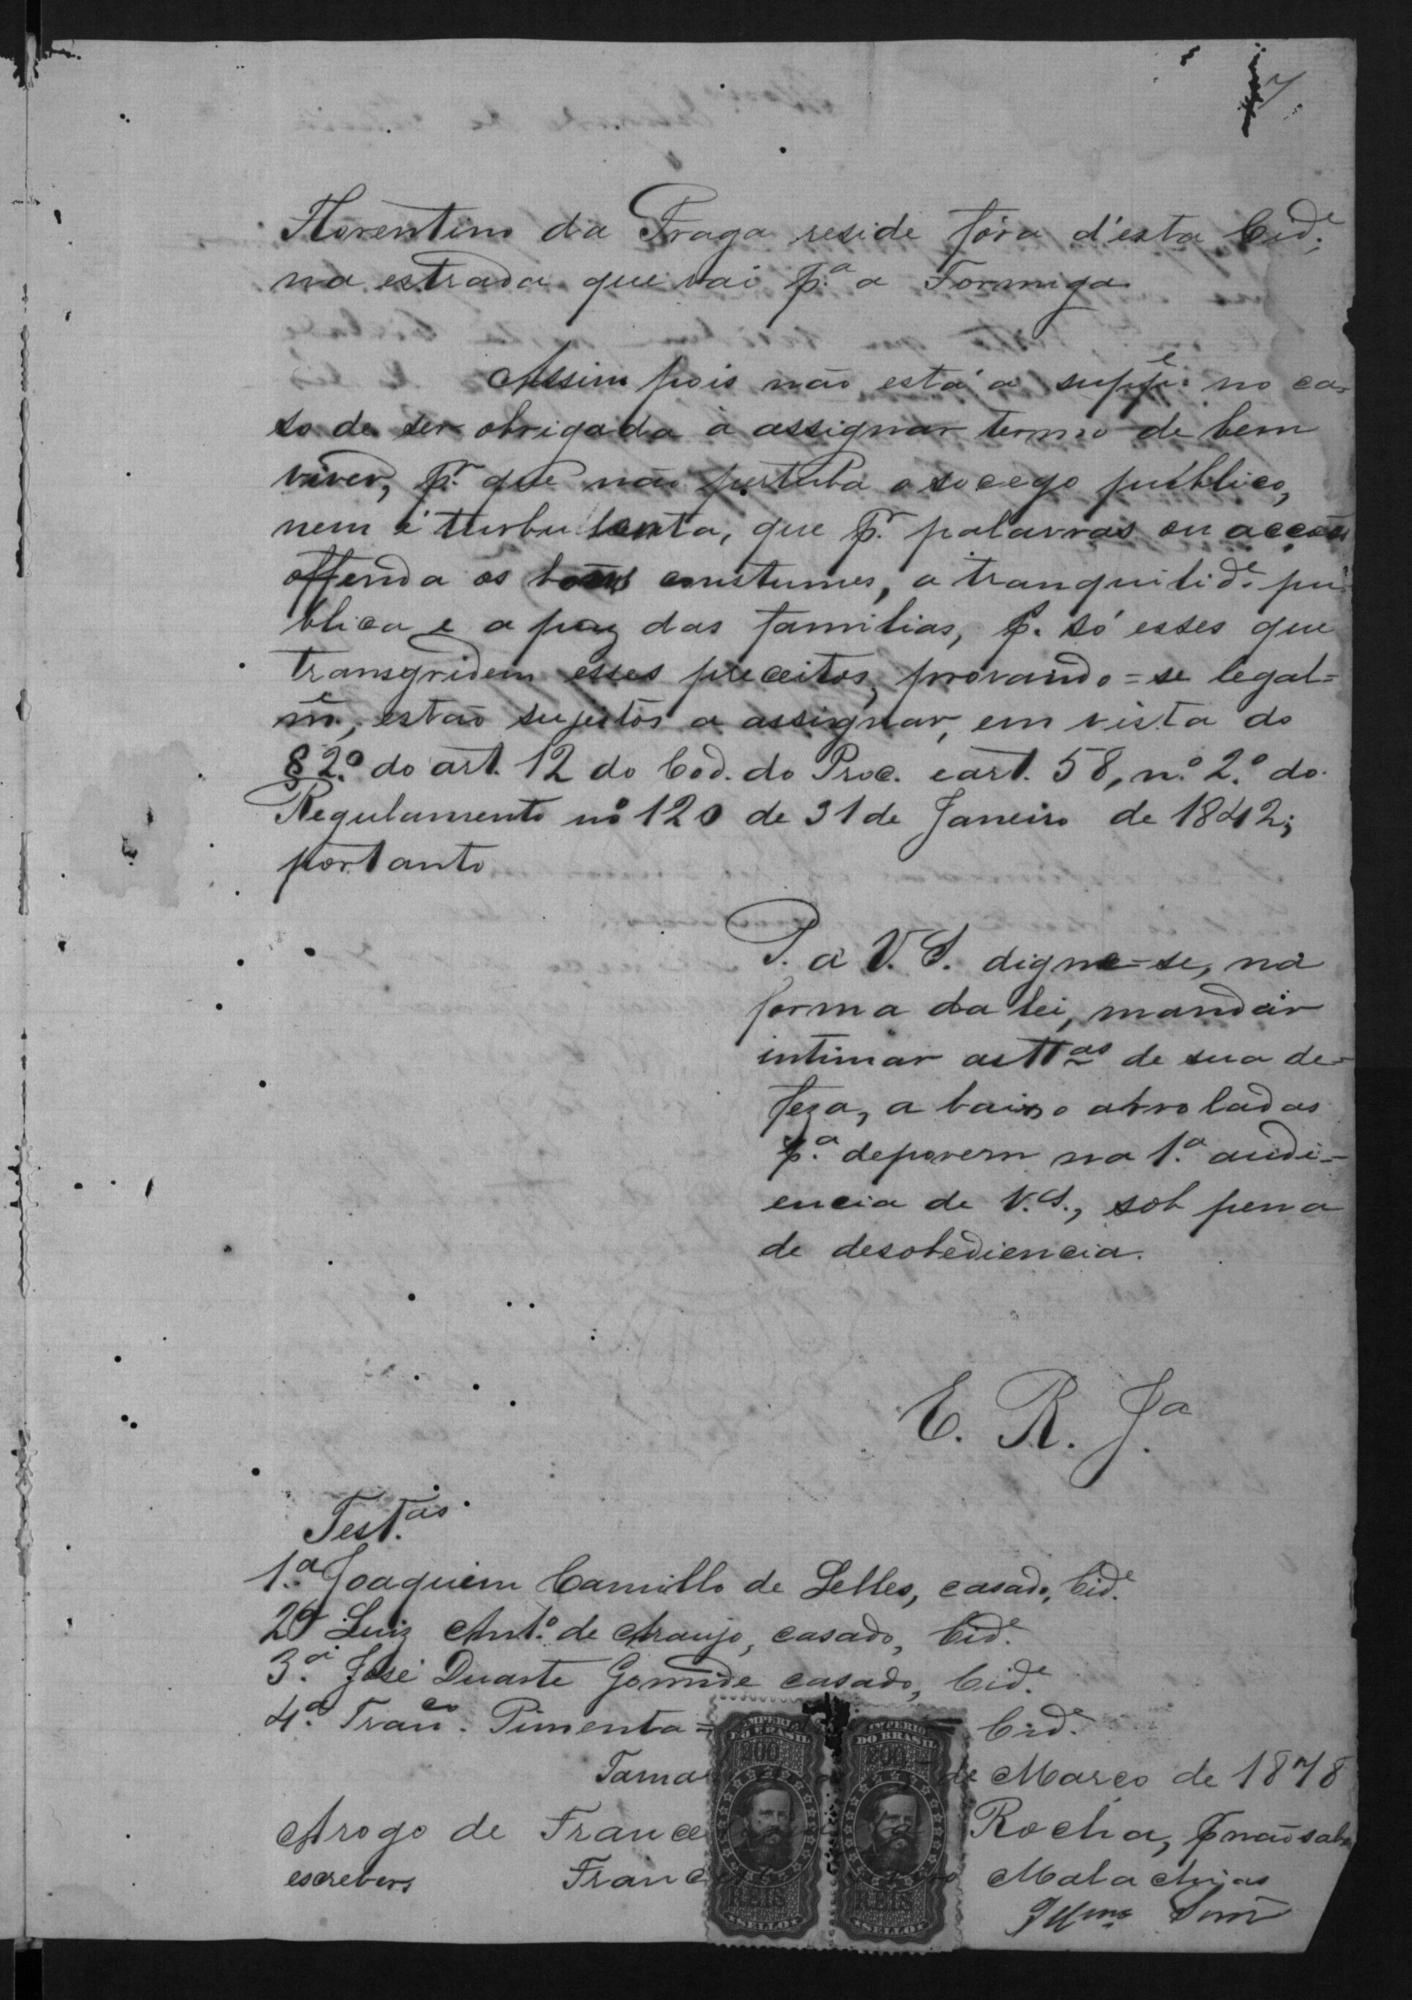 7
Florentino da Fraga reside fóra d'esta Cid.e
na estrada que vai p.a a Formiga
Assim pois não está a supp.e no ca-
so de ser obrigada á assignar termo de bem
viver, p.r que não pertuba o socego publico,
nem é turbulenta, que p.r palavras ou acções
offenda os bons constumes, a tranquilid.e pu-
blica e a paz das familias, p. só esses que
transgridem esses preceitos, provando=se legal=
m.e, estão sujeitos a assignar, em vista do
§ 2.º do art. 12 do Cod. do Proc. e art. 58, n.º 2.º do
Regulamento nº 120 de 31 de Janeiro de 1842;
portanto
P. a V. S. digne=se, na
forma da lei, mandar
intimar as tt.as de sua de-
feza, a baixo arroladas
p.a deporem na 1.a audi-
encia de V. S., sob pena
de desobediencia.
E. R. J.a
Test.as
1.a Joaquim Camillo de Lelles, casado, Cid.e
2.a Luiz Ant.o de Araujo, casado, Cid.e
3.a José Duarte Gomide casado, Cid.e
4.a Fran.co Pimenta = Cid.e
IMPERIO DO BRASIL
200
REIS
SELLO
IMPERIO DO BRASIL
200
REIS
SELLO
Tama de Março de 1878
Arogo de France Rocha, p não saber
escrever Franc Malachias
Illmo Snr